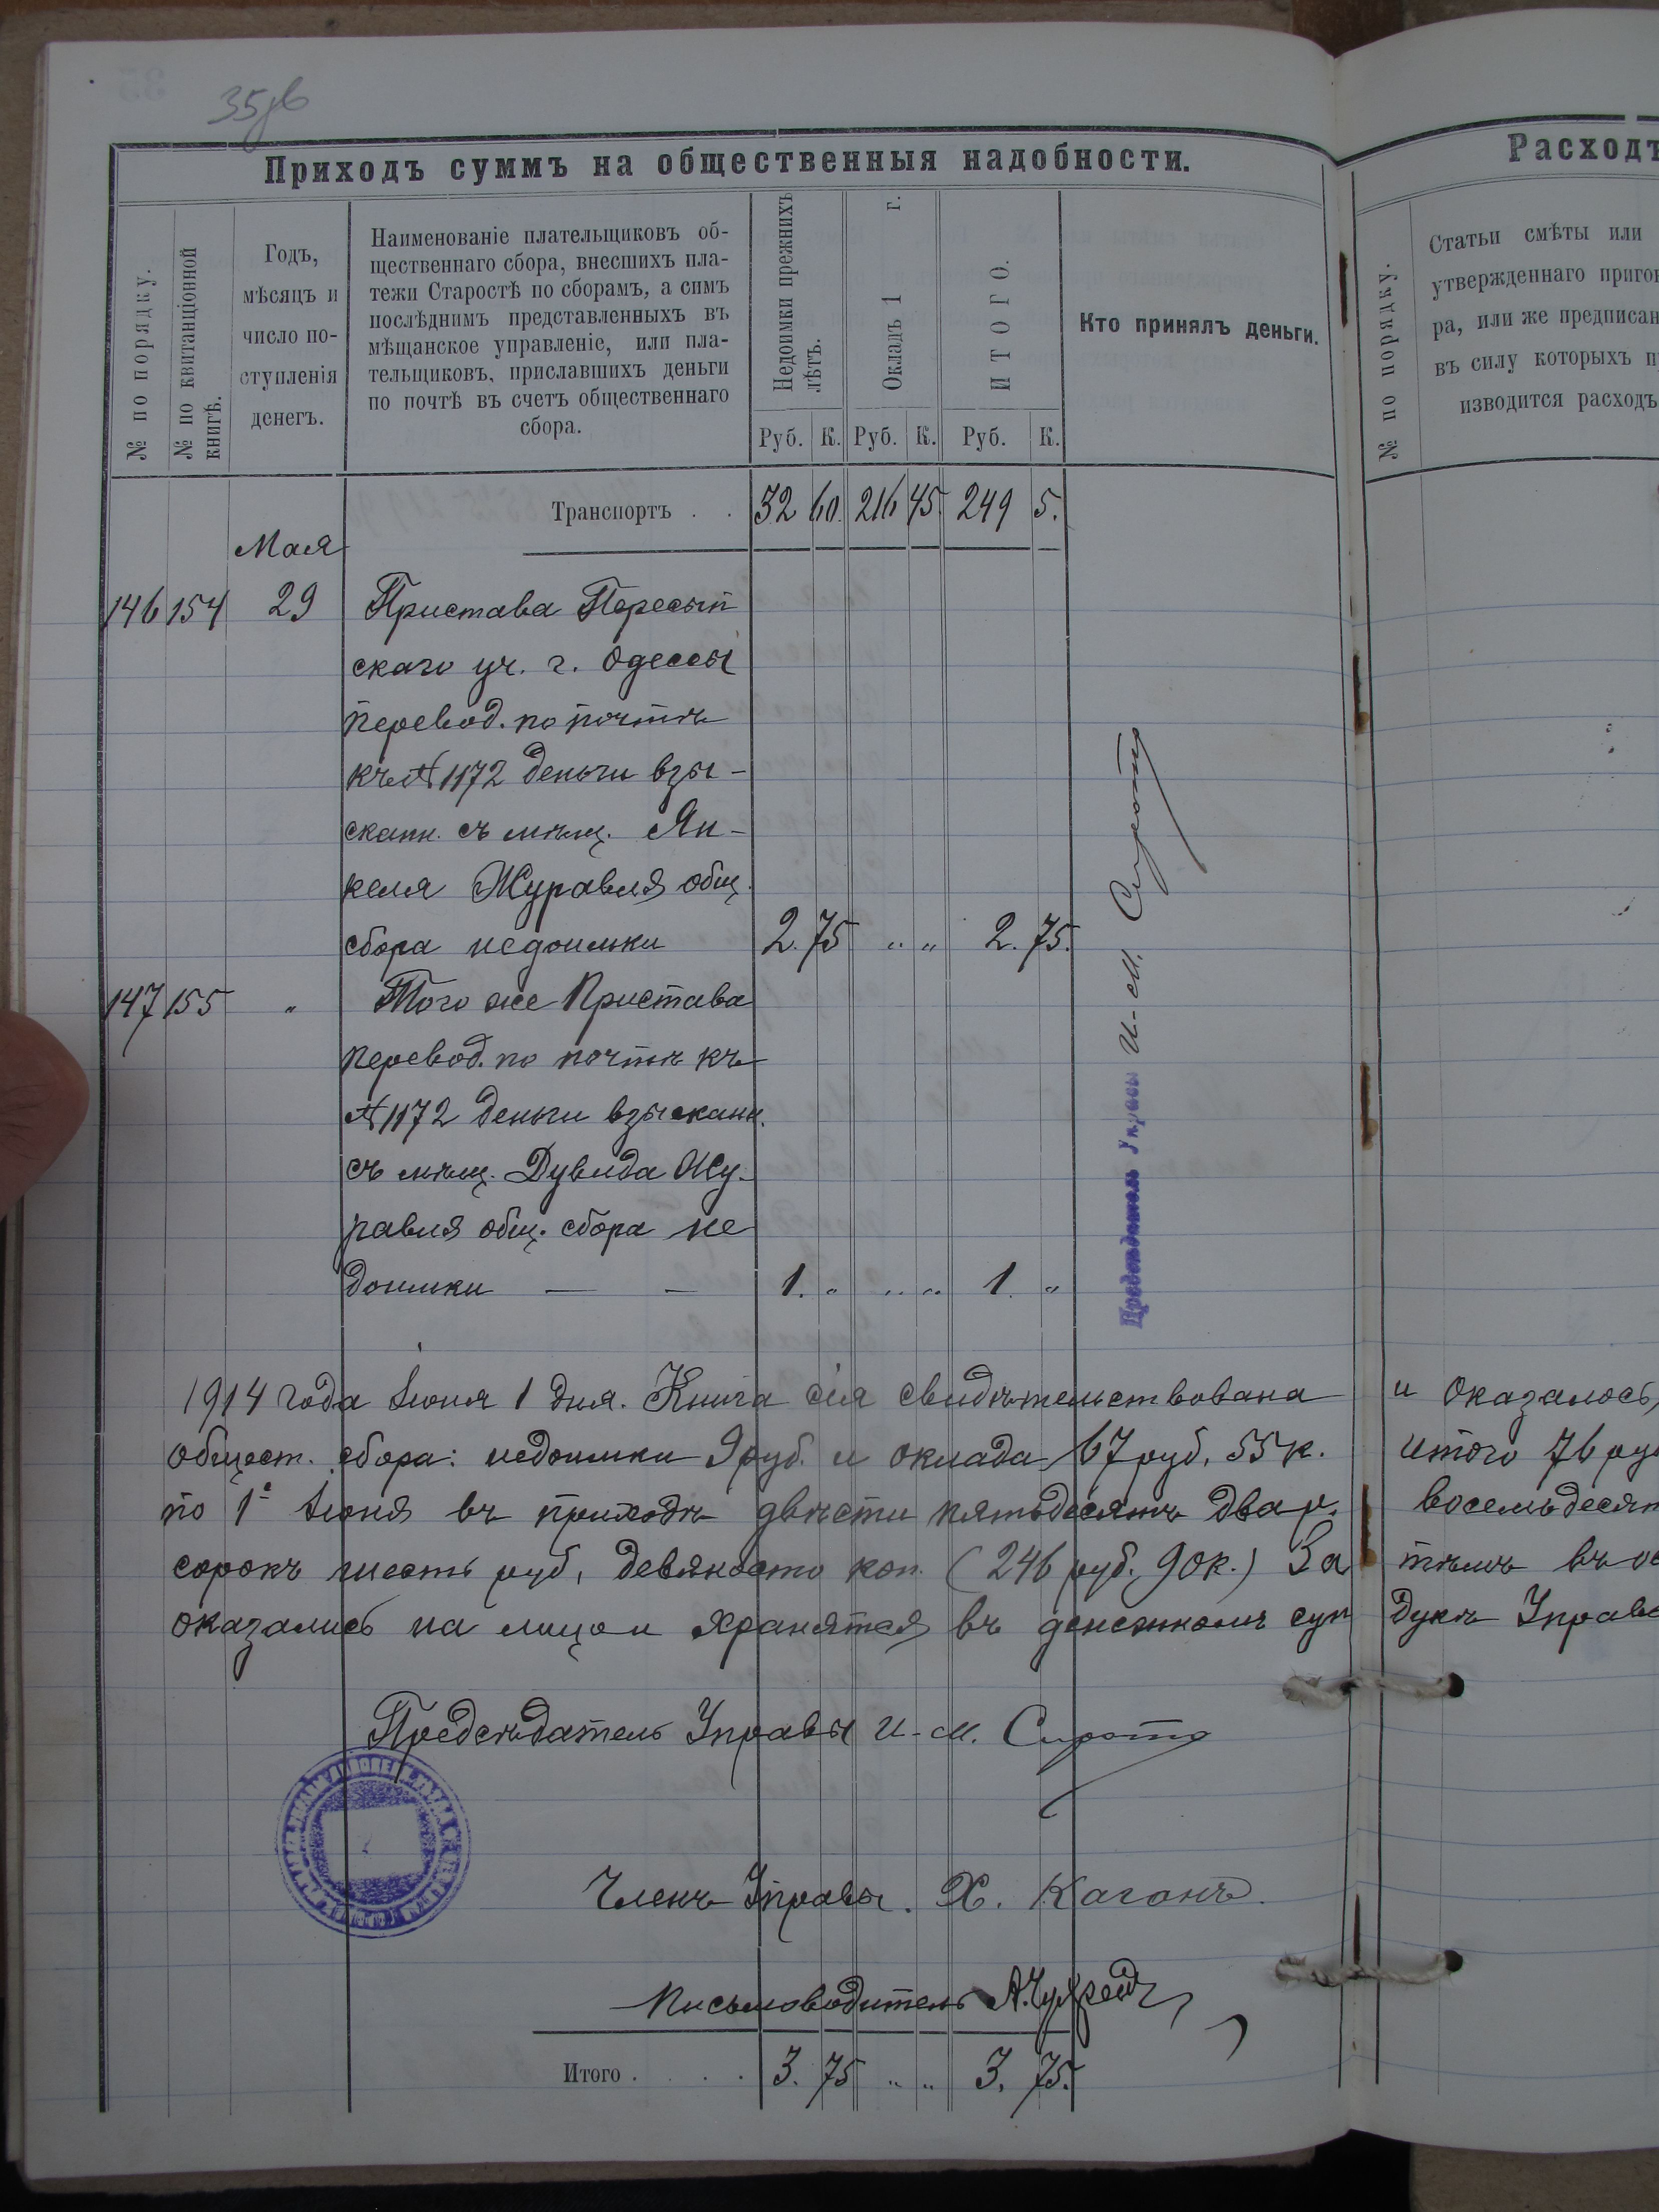 35об
Приходъ суммъ на общественныя надобности.
№ по порядку.
№ по квитанціонной
книгѣ.
Годъ,
мѣсяцъ и
число по-
ступленія
денегъ.
Наименованіе плательщиковъ об-
щественнаго сбора, внесшихъ пла-
тежи Старостѣ по сборамъ, а симъ
послѣднимъ представленныхъ въ
мѣщанское управленіе, или пла-
тельщиковъ, приславшихъ деньги
по почтѣ въ счетъ общественнаго
сбора.
Недоимки прежнихъ
лѣтъ.
Окладъ 1 г.
ИТОГО.
Кто принялъ деньги.
Руб. К. Руб. К. Руб. К.
Транспортъ . . 32 60. 216 45. 249 5.
Мая
146 154 29 Пристава Пересып
скаго уч. г. Одессы
перевод. по почтѣ
къ № 1172 деньги взы-
скан. съ мѣщ. Ян-
келя Журавля общ.
сбора недоимки 2. 75 " " 2. 75.
147 155 " Того же Пристава
перевод. по почтѣ къ
№ 1172 деньги взыскан.
съ мѣщ. Дувида Жу-
равля общ. сбора не
доимки — — 1. " " " 1. "
Предсѣдатель Управы И-М. Сирота
1914 года Іюня 1 дня. Книга сія свидѣтельствована
общест. сбора: недоимки 9 руб. и оклада 67 руб. 55 к.
по 1е Іюня въ приходѣ двѣсти пятьдесятъ два р.
сорокъ шесть руб, девяносто коп. (246 руб. 90 к.) За
оказались на лицо и хранятся въ денежномъ сун
Предсѣдатель Управы И-М. Сирота
Членъ Управы. Х. Каганъ.
Письмоводитель А.
Итого . . . . 3. 75 " " 3. 75.
Расходъ
№ по порядку.
Статьи смѣты или
утвержденнаго пригов
ра, или же предписан
въ силу которыхъ п
изводится расходъ
и оказалось,
итого 76 руб
восемьдесят
тѣмъ въ ос
дукѣ Управ